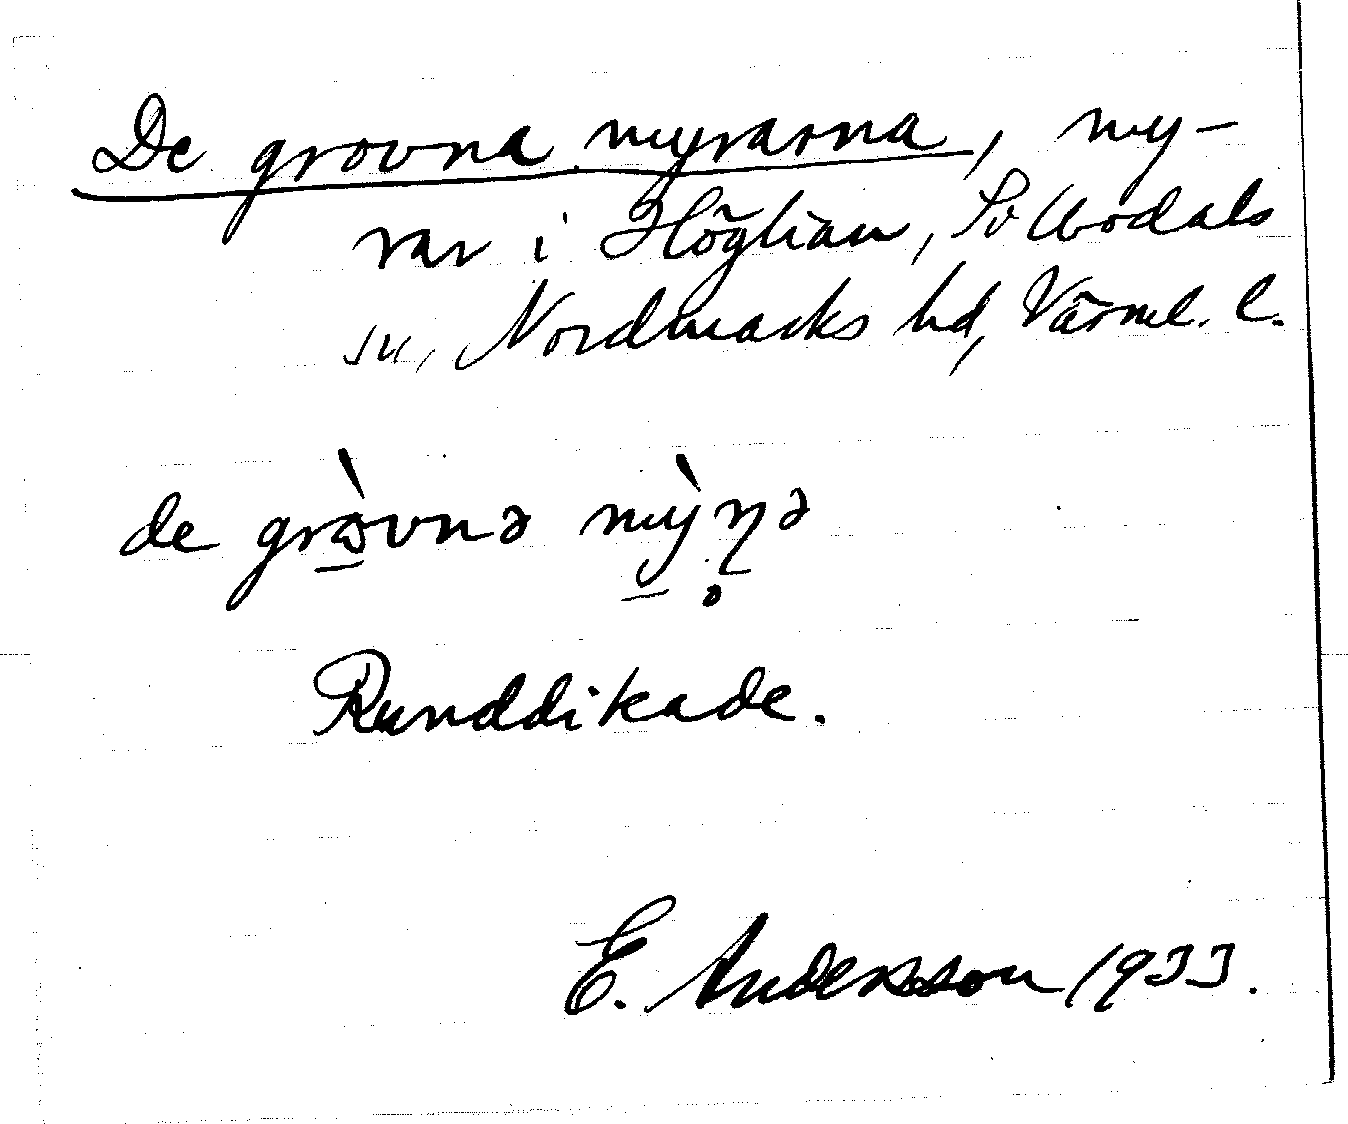 De grovna myrarna, my-
rar i Höglian, Sv Ullerodals
sn, Nordmarks hd, Värml. l.
de grɷ̀vnə mỳn̥ə
Runddikade.
E. Andersson 1933.